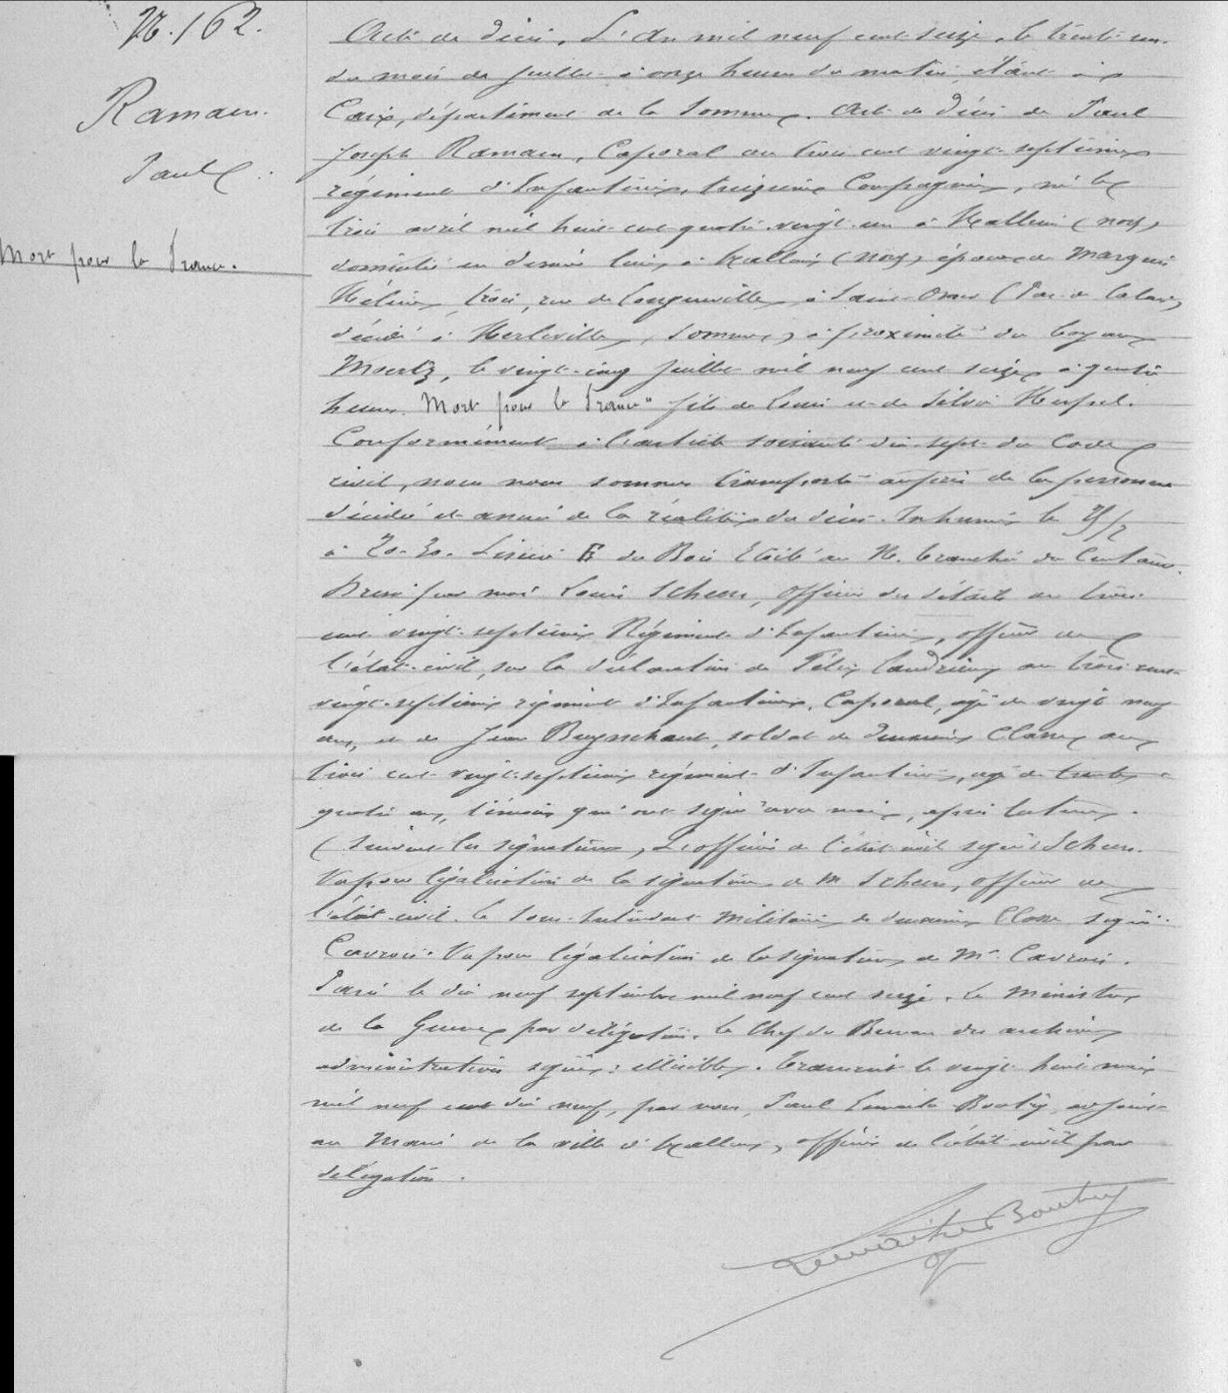 N. 162.
Ramaen
Paul
Mort pour la France.
Acte de décès. L'An mil neuf cent seize, le trente un
du mois de juillet à onze heures du matin, étant à
Caix, département de la Somme. Acte de décès de Paul
Joseph Ramaen, Caporal au trois cent vingt-septième
régiment d'Infanterie, treizième Compagnie, né le
trois avril mil huit cent quatre-vingt-un à Halluin (nord)
domicilié en dernier lieu à Halluin (nord) époux de
Hélène, trois, rue de Longueville à Saint-Omer (Pas de Calais)
décédé à Herleville, (Somme) à proximité du boyau
le vingt-cinq juillet mil neuf cent seize à quatre
heures. Mort pour la France" fils de Louis et de Silvie
Conformément à l'article soixante dix-sept du Code
civil, nous nous sommes transporté auprès de la personne
décédée et assuré de la réalité du décès. Inhumé le
à 20.30. Lisière du Bois Etoilé au N.
Dressé par moi Louis Scheer, officier des détails au trois
cent vingt-septième Régiment d'Infanterie, officier de
l'état-civil, sur la déclaration de Félix au trois cent
vingt-septième régiment d'Infanterie, Caporal, âgé de vingt neuf
ans, et de Jean soldat de deuxième Classe au
trois cent vingt-septième régiment d'Infanterie, âgé de trente
quatre ans, témoins qui ont signé avec moi, après lecture.
(Suivent les signatures, L'officier de l'état-civil signé: Scheer.
Vu pour légalisation de la signature de M Scheer, officier de
l'état-civil. Le Sous-Intendant Militaire de deuxième Classe signé:
Cavrois. Vu pour légalisation de la signature de Mr. Cavrois.
Paris le dix neuf septembre mil neuf cent seize. Le Ministre
de la Guerre par délégation. Le Chef du Bureau des archives
administratives signé: illisible. Transcrit le vingt huit mai
mil neuf cent dix neuf, par nous, Paul Lemaitre Boutry, adjoint
au Maire de la ville d'Halluin, officier de l'état-civil par
délégation.
Lemaitre Boutry